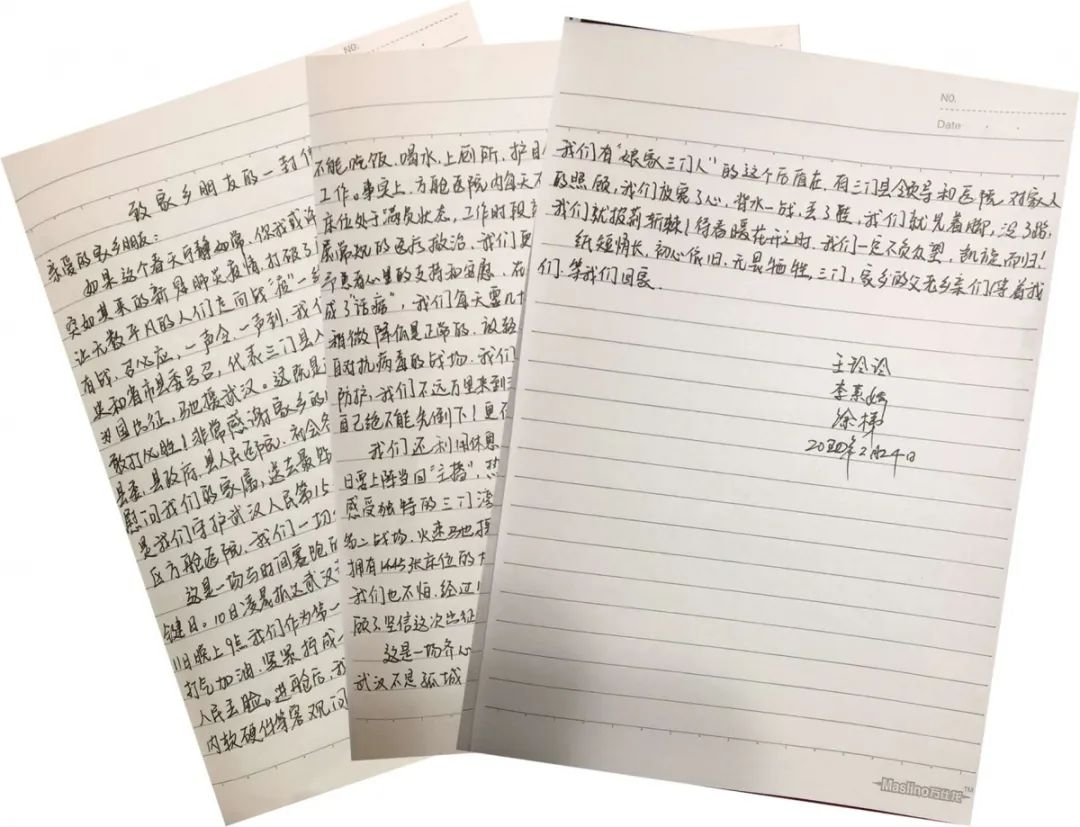 NO.
致家乡朋友的一封
亲爱的家乡朋友:
如果这个春天 静如常,你我或许
突如其来的新冠肺炎疫情,打破了
让无数平凡的人们走向战“疫”一
有战,召必应,一声令,一声到,我们
央和省市县委号召,代表三门县人
为国出征,驰援武汉。这既是
敢打必胜!非常感谢家乡的
县委、县政府、县人民医院、社会各
慰问我们的家属,送去最
是我们守护武汉人民第15
区方舱医院,我们一切
这是一场与时间赛跑的
键日。10日凌晨抵达武汉
11日晚上9点,我们作为第一
打气加油,紧紧拧成一
人民丢脸。进舱后,我
内软硬件等客观问
不能吃饭、喝水、上厕所,护目
工作。事实上,方舱医院内每天不
床位处于满员状态,工作时段
属常规的医疗救治,我们更
予患者心里的支持和安慰,在
成了“话痨”,我们每天要几十
稍微降低是正常的,被轻
面对抗病毒的战场,我们
防护,我们不远万里来到
自己绝不能先倒下!更
我们还利用休息
日要上阵当回“主播”,
感受独特的三门湾
第二战场,火速驰援
拥有1445张床位的
我们也不怕,经过
顾了坚信这次出征
这是一场齐心
武汉不是孤城
NO.
Date
我们有“娘家三门人”的这个后盾在,有三门县领导和医院,对家人
的照顾,我们放宽了心,背水一战,丢了鞋,我们就光着脚,没了路,
我们就披荆斩棘!待春暖花开之时,我们一定不负众望,凯旋而归!
纸短情长,初心依旧,无畏牺牲,三门,家乡的父老乡亲们等着我
们,等我们回家.
王玲玲
李惠
徐
2020年2月24日
Maslino万仕龙™